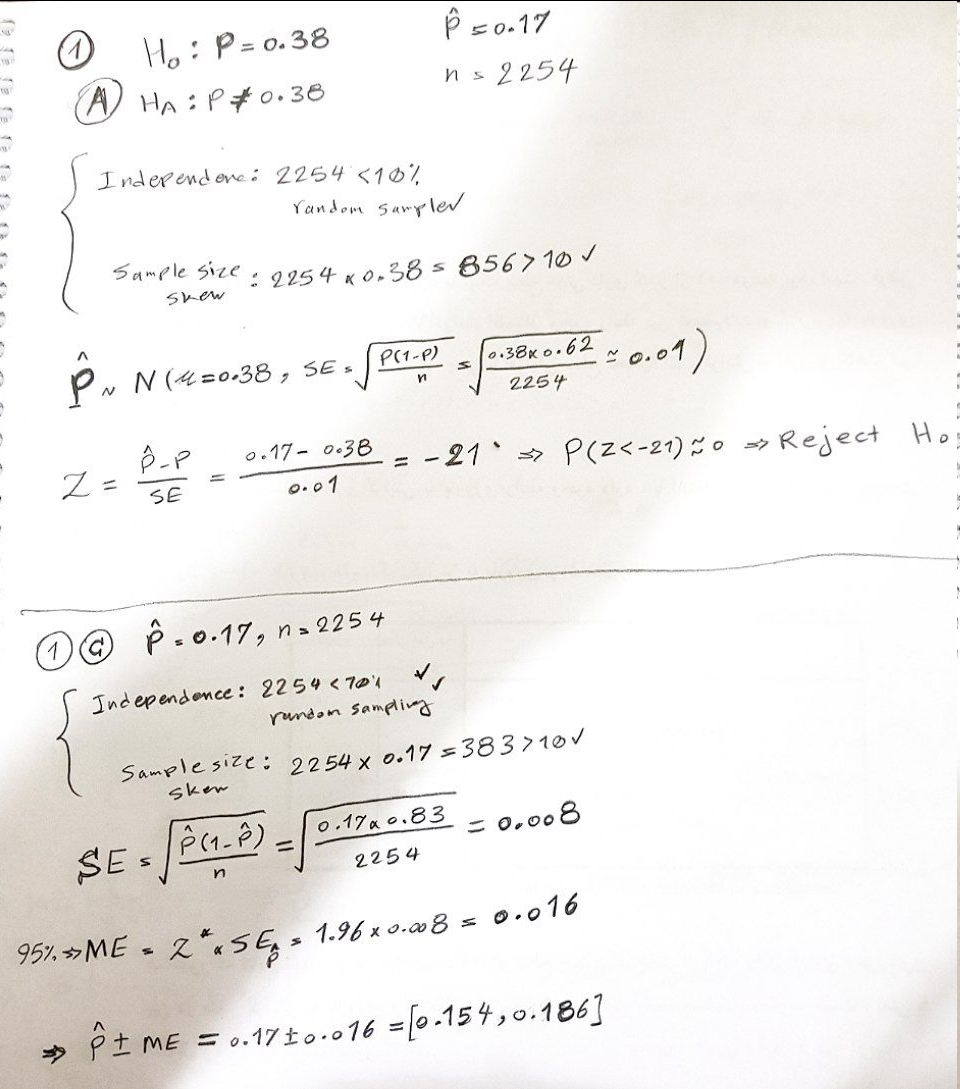 ① H₀ : P = 0.38    P̂ = 0.17
Ⓐ H_A : P ≠ 0.38    n = 2254
Independence: 2254 < 10%
random sample✓
Sample size : 2254 × 0.38 = 856 > 10 ✓
skew
P̂ ~ N(μ=0.38, SE = √(P(1-P)/n) = √(0.38×0.62/2254) ≃ 0.01)
Z = (P̂-P)/SE = (0.17 - 0.38)/0.01 = -21 ⇒ P(Z<-21) ≃ 0 ⇒ Reject H₀
① Ⓒ P̂ = 0.17, n = 2254
Independence: 2254 < 10% ✓
random sampling ✓
Sample size: 2254 × 0.17 = 383 > 10 ✓
skew
SE = √(P̂(1-P̂)/n) = √(0.17×0.83/2254) = 0.008
95% ⇒ ME = Z* × SE_P̂ = 1.96 × 0.008 = 0.016
⇒ P̂ ± ME = 0.17 ± 0.016 = [0.154, 0.186]